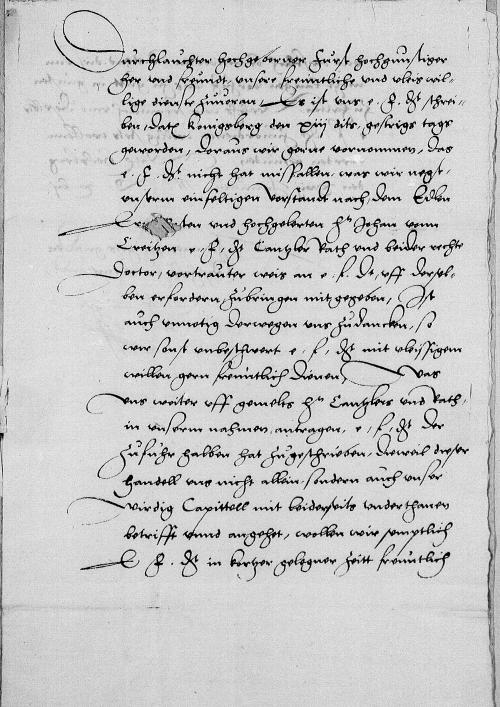 Durchlauchter hochgeborner Furst hochgunstiger
her vnd freundt, vnsere freuntliche vnd vleis wil-
lige dienste zuuoran, Es ist vns e. F. Dt. schrei-
ben, dat. Konigsberg den xiii dits, gestrigs tags
geworden, doraus wir gerne vornommen, das
e. F. Dt. nicht hat misfallen, was wir negst,
vnserm einfeltigen vorstandt nach, dem Edlen
vnd hochgelerten hern Johan vonn
Creitzen e. F. Dt. Cantzler Rath vnd beider rechte
Doctor, vortrauter weis an e. f. Dt. vff dersel-
ben erfordern, zubringen mitgegeben, Ist
auch vnnotig derwegen vns zudancken, so
wir sonst vnbeschwert e. f. Dt. mit vleissigem
willen, gern freuntlich dienen, Was
vns weiter vff gemelts hern Cantzlers vnd Rath,
in vnserm nahmen, antragen, e. f. Dt. der
Zufuhr halben hat zugeschrieben, dieweil dieser
handell vns nicht allein, sondern auch vnser
wirdig Capittell mit beiderseits vnderthanen
betrifft vnnd angehet, wollen wir semptlich
E. F. Dt. in kortzer gelegner zeitt freuntlich